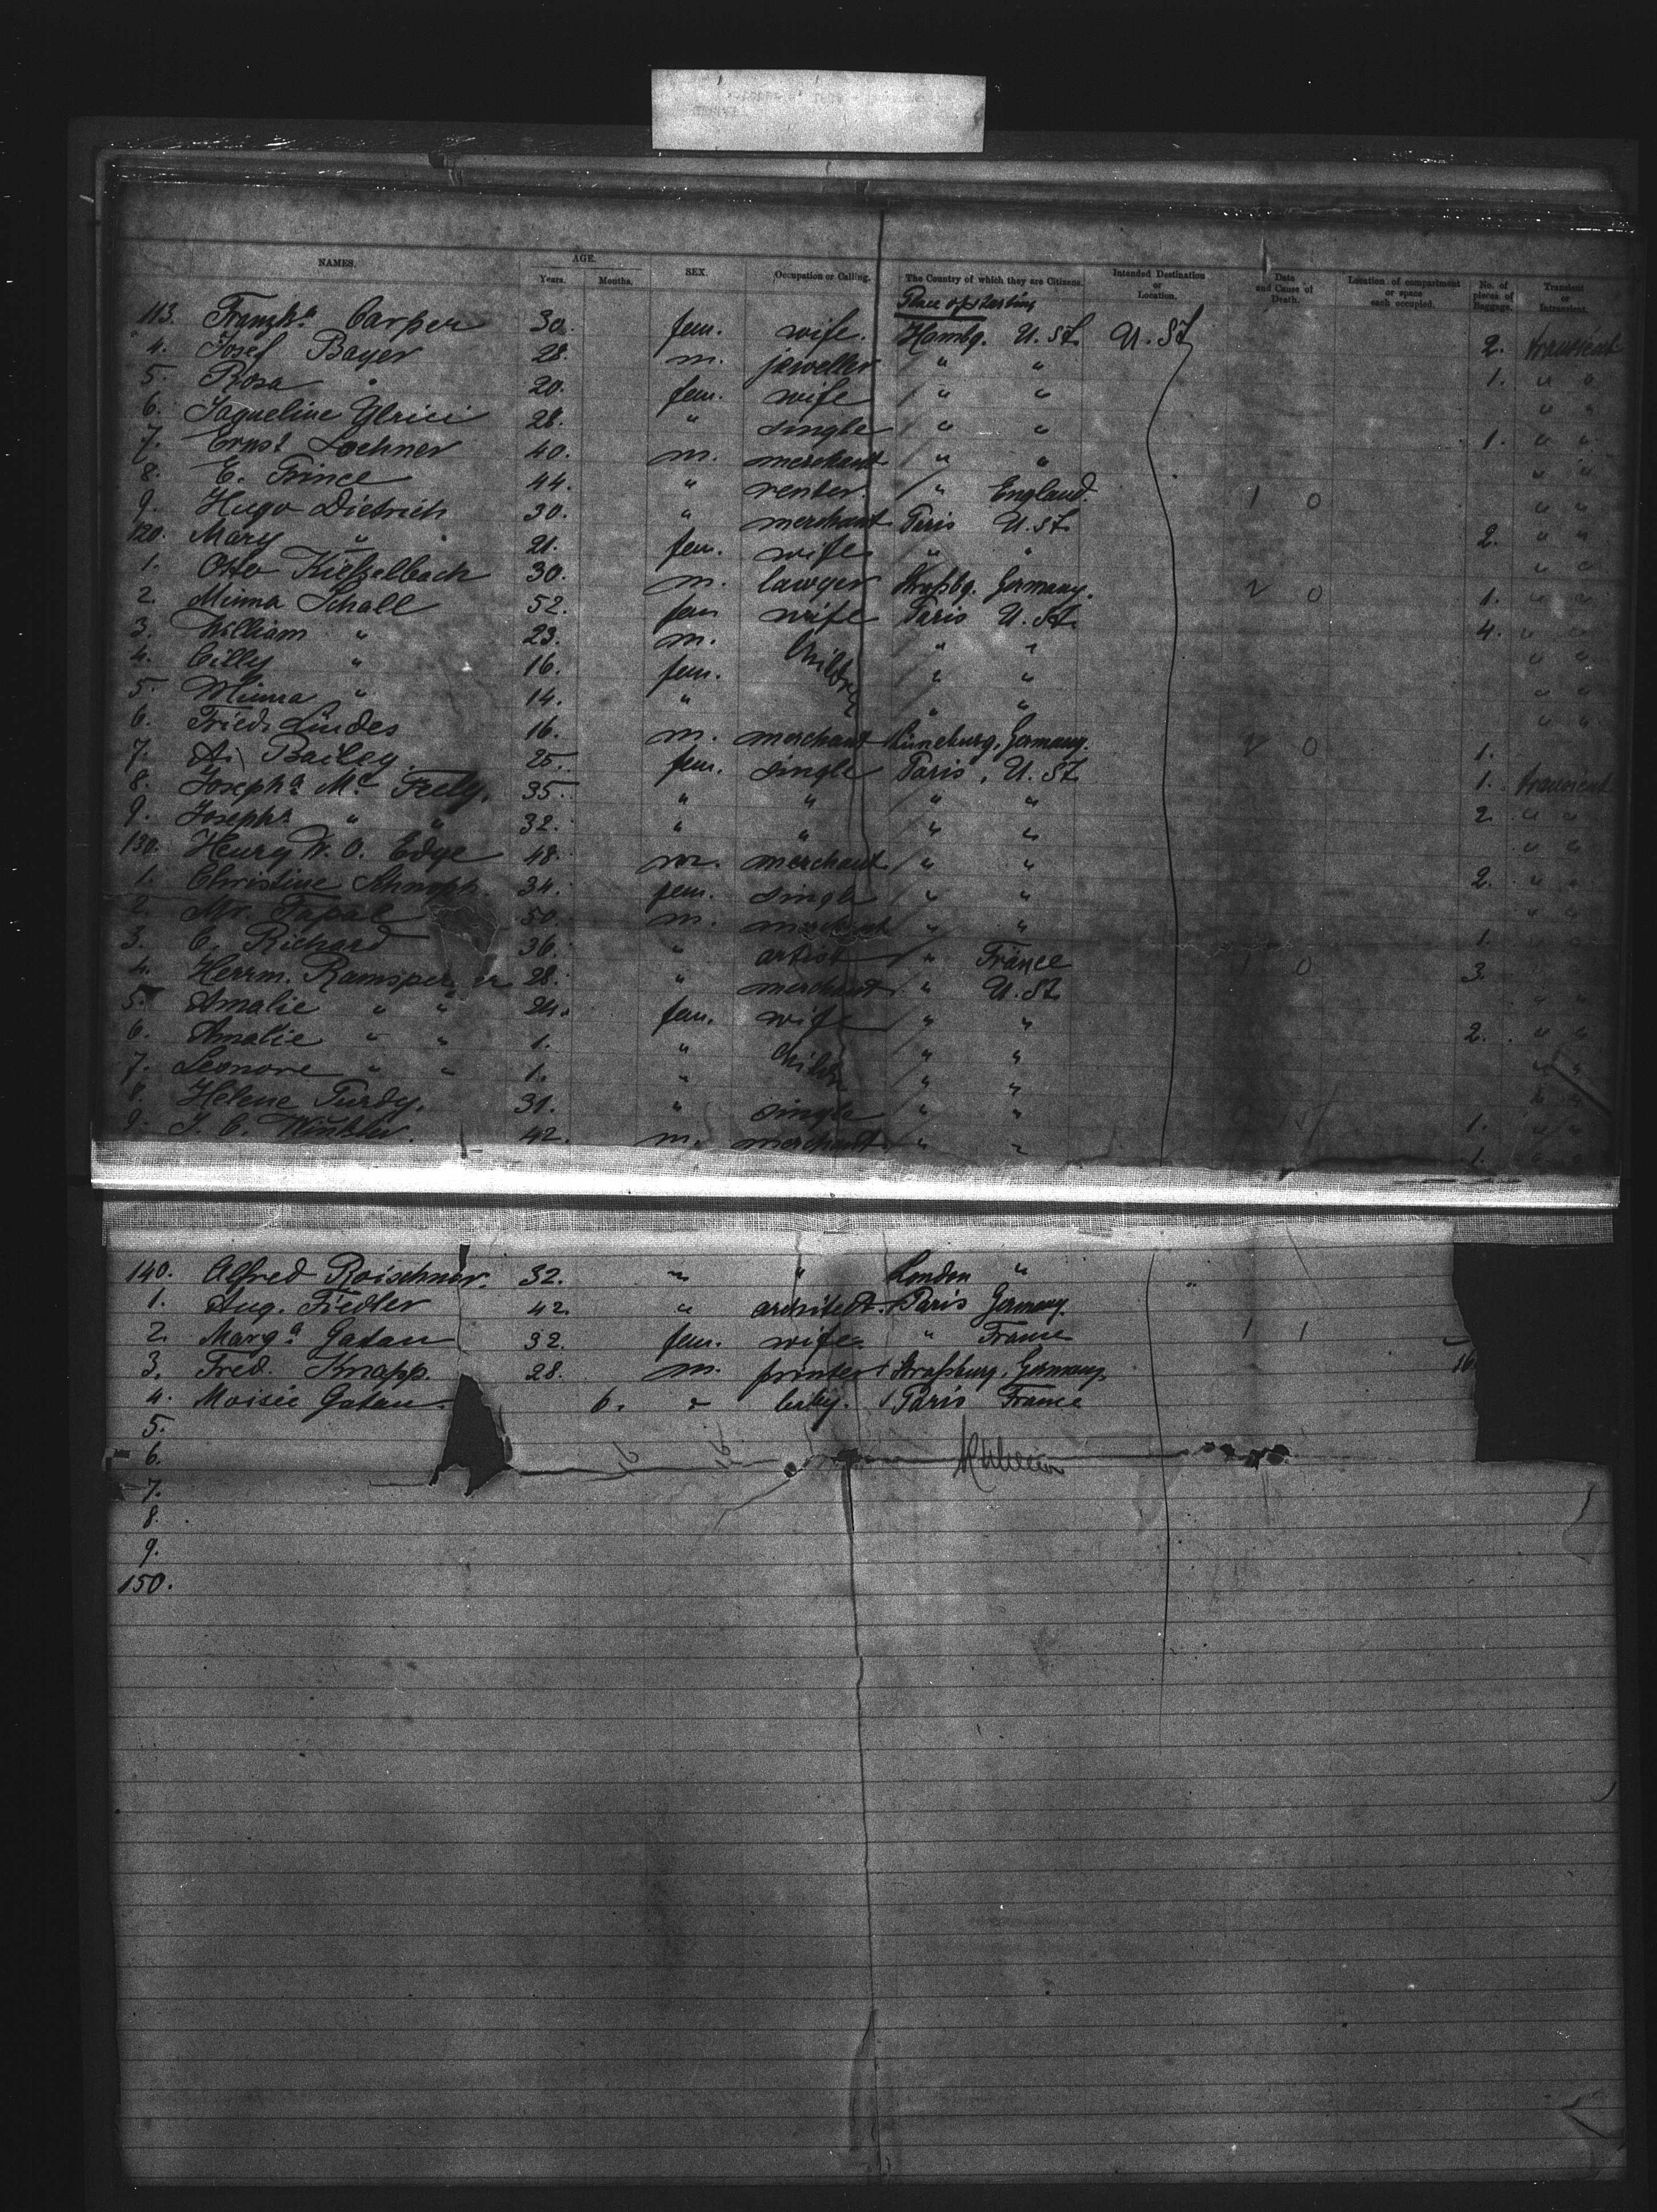 NAMES. AGE. Years. Months. SEX. Occupation or Calling. The Country of which they are Citizens. Intended Destination or Location. Date and Cause of Death. Location of compartment or space each occupied. No. of pieces of Baggage. Transient or Intransient.
Place of starting
113. Franzka Carper 30. fem. wife. Hambg. U. St. U. St. 2. transient
4. Josef Bayer 28. m. jeweller " " 1. " "
5. Rosa " 20. fem. wife " " " "
6. Jaqueline Ulrici 28. " single " " 1. " "
7. Ernst Lochner 40. m. merchant " " " "
8. E. Prince 44. " renter. " England. 1 0 " "
9. Hugo Dietrich 30. " merchant Paris U. St. 2. " "
120. Mary " 21. fem. wife " " " "
1. Otto Kießelbach 30. m. lawyer Straßbg. Germany. 2 0 1. " "
2. Minna Schall 52. fem wife Paris U. St. 4. " "
3. William " 23. m. Children " " " "
4. Cilly " 16. fem. " " " "
5. Minna " 14. " " " " "
6. Fried. Lindes 16. m. merchant Lüneburg, Germany. 2 0 1.
7. A. Bailey. 25. fem. single Paris, U. St. 1. transient
8. Josepha Mc Feely. 35. " " " " 2. " "
9. Josepha " " 32. " " " " " "
130. Henry W. O. Edge 48. m. merchant " " 2. " "
1. Christine 34. fem. single " " " "
2. Mr. Papae 50. m. merchant " " 1. " "
3. C. Richard 36. " artist " France 1 0 3.
4. Herrm. 28. " merchant " U. St. " "
5. Amalie " " 24. fem. wife " " 2. " "
6. Amalie " " 1. " Childr " " " "
7. Leonore " " 1. " " " " "
8. Helene Purdy. 31. " single " " 1. " "
9. J. C. Winkler. 42. m. merchant. " " 1. " "
140. Alfred Roischner. 32. " " London " "
1. Aug. Fiedler 42. " architect. Paris Germany.
2. Marga Gatau 32. fem. wife. " France 1 1
3. Fred. Knapp. 28. m. printer Straßburg, Germany. 16
4. Moisée Gatau. 6. " baby. Paris France
5.
6.
7.
8.
9.
150.